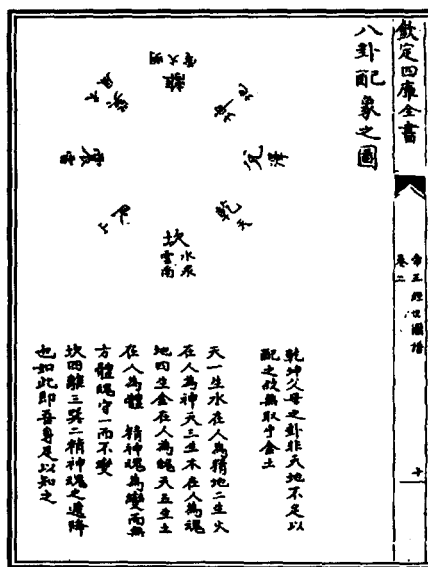 欽定四庫全書
帝王經世圖譜
卷二
十
八卦配象之圖
離
電火明
坤地
兌澤
乾天
坎
水泉
雲雨
艮山
震雷
巽
風木
乾坤父母之卦非天地不足以
配之故無取乎金土
天一生水在人為精地二生火
在人為神天三生木在人為魂
地四生金在人為魄天五生土
在人為體 精神魂為變而無
方體魄守一而不變
坎四離三巽二精神魂之遞降
也如此即吾身足以知之